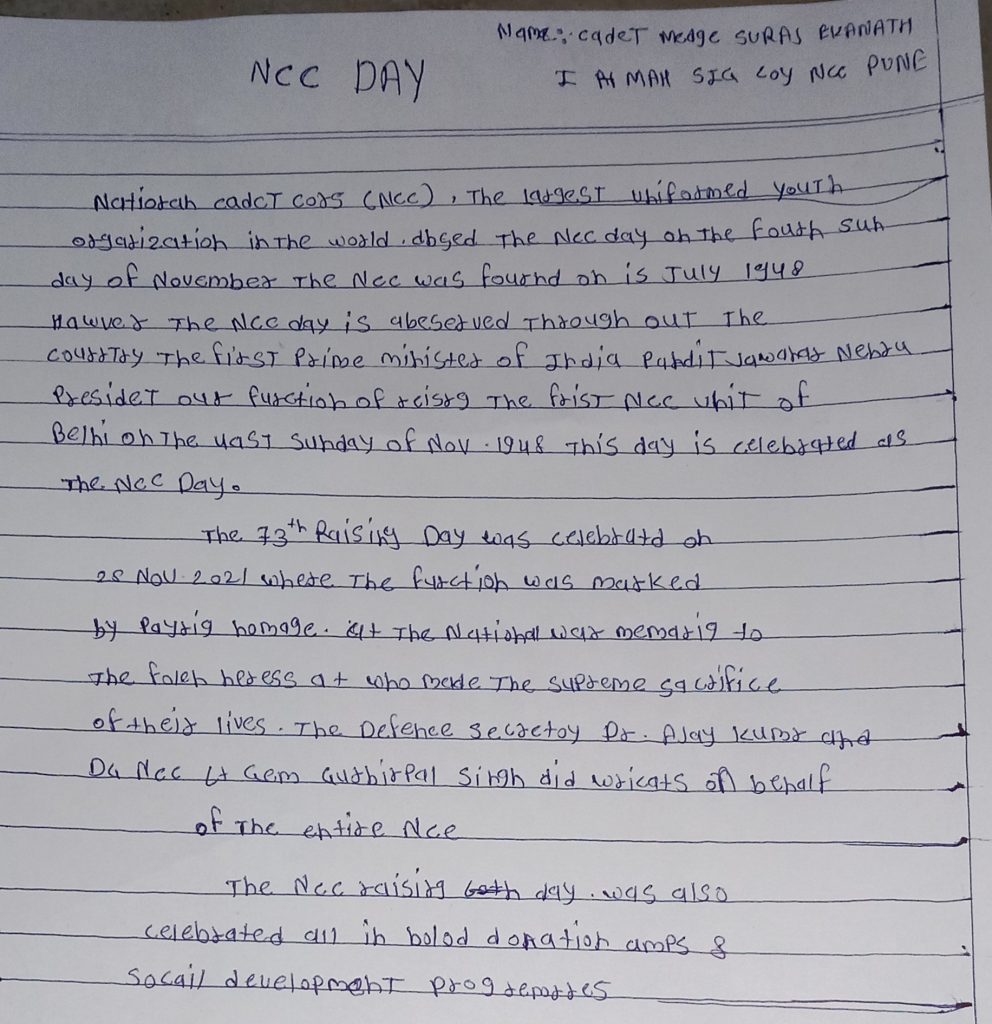 Name:- cadet medge SURAJ EKANATH
NCC DAY
I MAH SIG COY NCC PUNE
Nationah cadet cors (NCC), The largest uniformed youth
organization in the world. obsed The Ncc day on the fouth sun
day of November The Ncc was fournd on is July 1948
Hawver The Ncc day is abeserved Through out The
The first Prime minister of India Pandit Jawahar Nehru
Presidet our function of reising The frist Ncc unit of
Belhi on The uast sunday of Nov. 1948 This day is celebrated as
The Ncc Day.
The 73th Raising Day was celebratd on
28 Nov 2021 where The function was marked
by Payrig homage. at The National war memarig to
The falen heress at who made The supreme sacrifice
of their lives. The Defence secretoy Dr. Ajay kumr and
DG Ncc Lt Gem Gurbirpal Singh did wricats on behalf
of The entire Nce
The Ncc raising day. was also
celebrated all in bolod donation amps &
Socail development